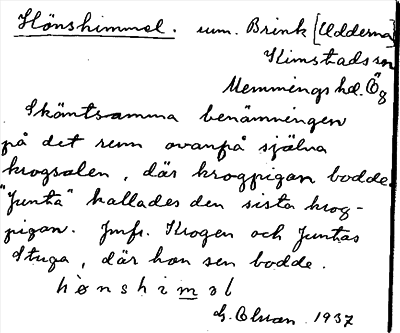 Hönshimmel. rum. Brink [Udderna]
Kimstads sn
Memmings hd. Ög
Skämtsamma benämningen
på det rum ovanpå själva
krogsalen, där krogpigan bodde.
"Junta" kallades den sista krog-
pigan. Jmfr. Krogen och Juntas
Stuga, där hon sen bodde.
hønshiməl
G. Olsson. 1937